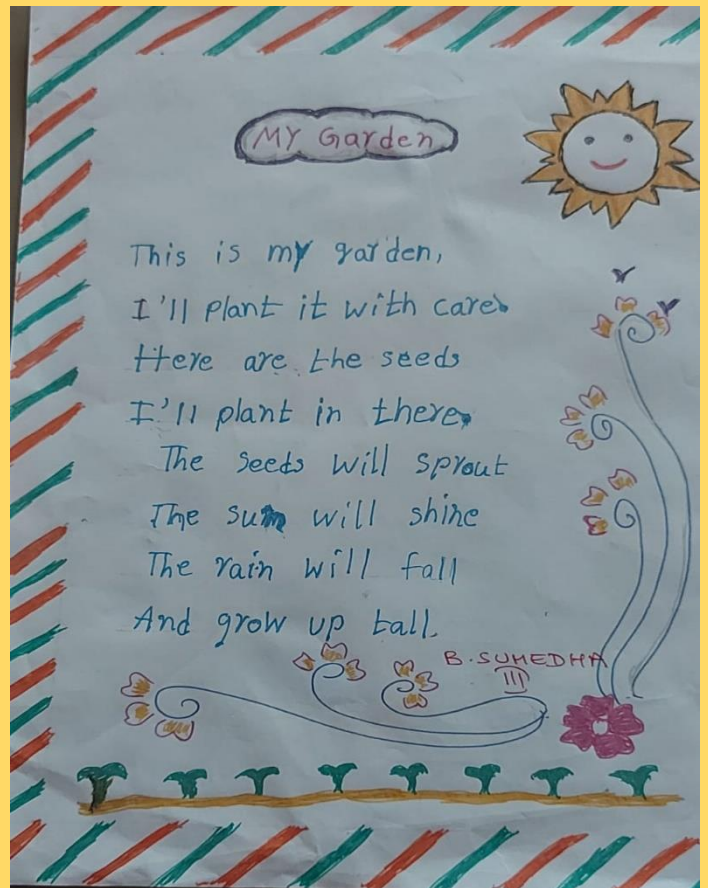 MY Garden
This is my garden,
I'll plant it with care.
Here are the seeds
I'll plant in there.
The seeds will sprout
The sun will shine
The rain will fall
And grow up tall.
B. SUMEDHA
III